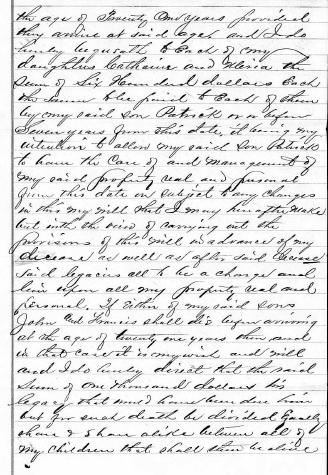 the age of Twenty one years provided
they arrive at said age and I do
hereby bequeath to Each of my
daughters Catharine and Maria the
sum of Six Hundred dollars Each
the same to be paid to Each of them
by my said son Patrick on or before
Seven years from this date, it being my
intention to allow my said son Patrick
to have the Care of and management of
my said property real and personal
from this date on subject to any changes
in this my Will that I may hereafter make
but with the view of carrying out the
provisions of this Will in advance of my
decease as well as after said decease
said legacies all to be a charge and
lien upon all my property real and
personal. If Either of my said sons
John and Francis shall die before arriving
at the age of twenty one years then and
in that case it is my wish and will
and I do hereby direct that the said
Sum of One Thousand dollars his
legacy that would have been due him
but for such death be divided Equally
share & share alike between all of
my children that shall then be alive